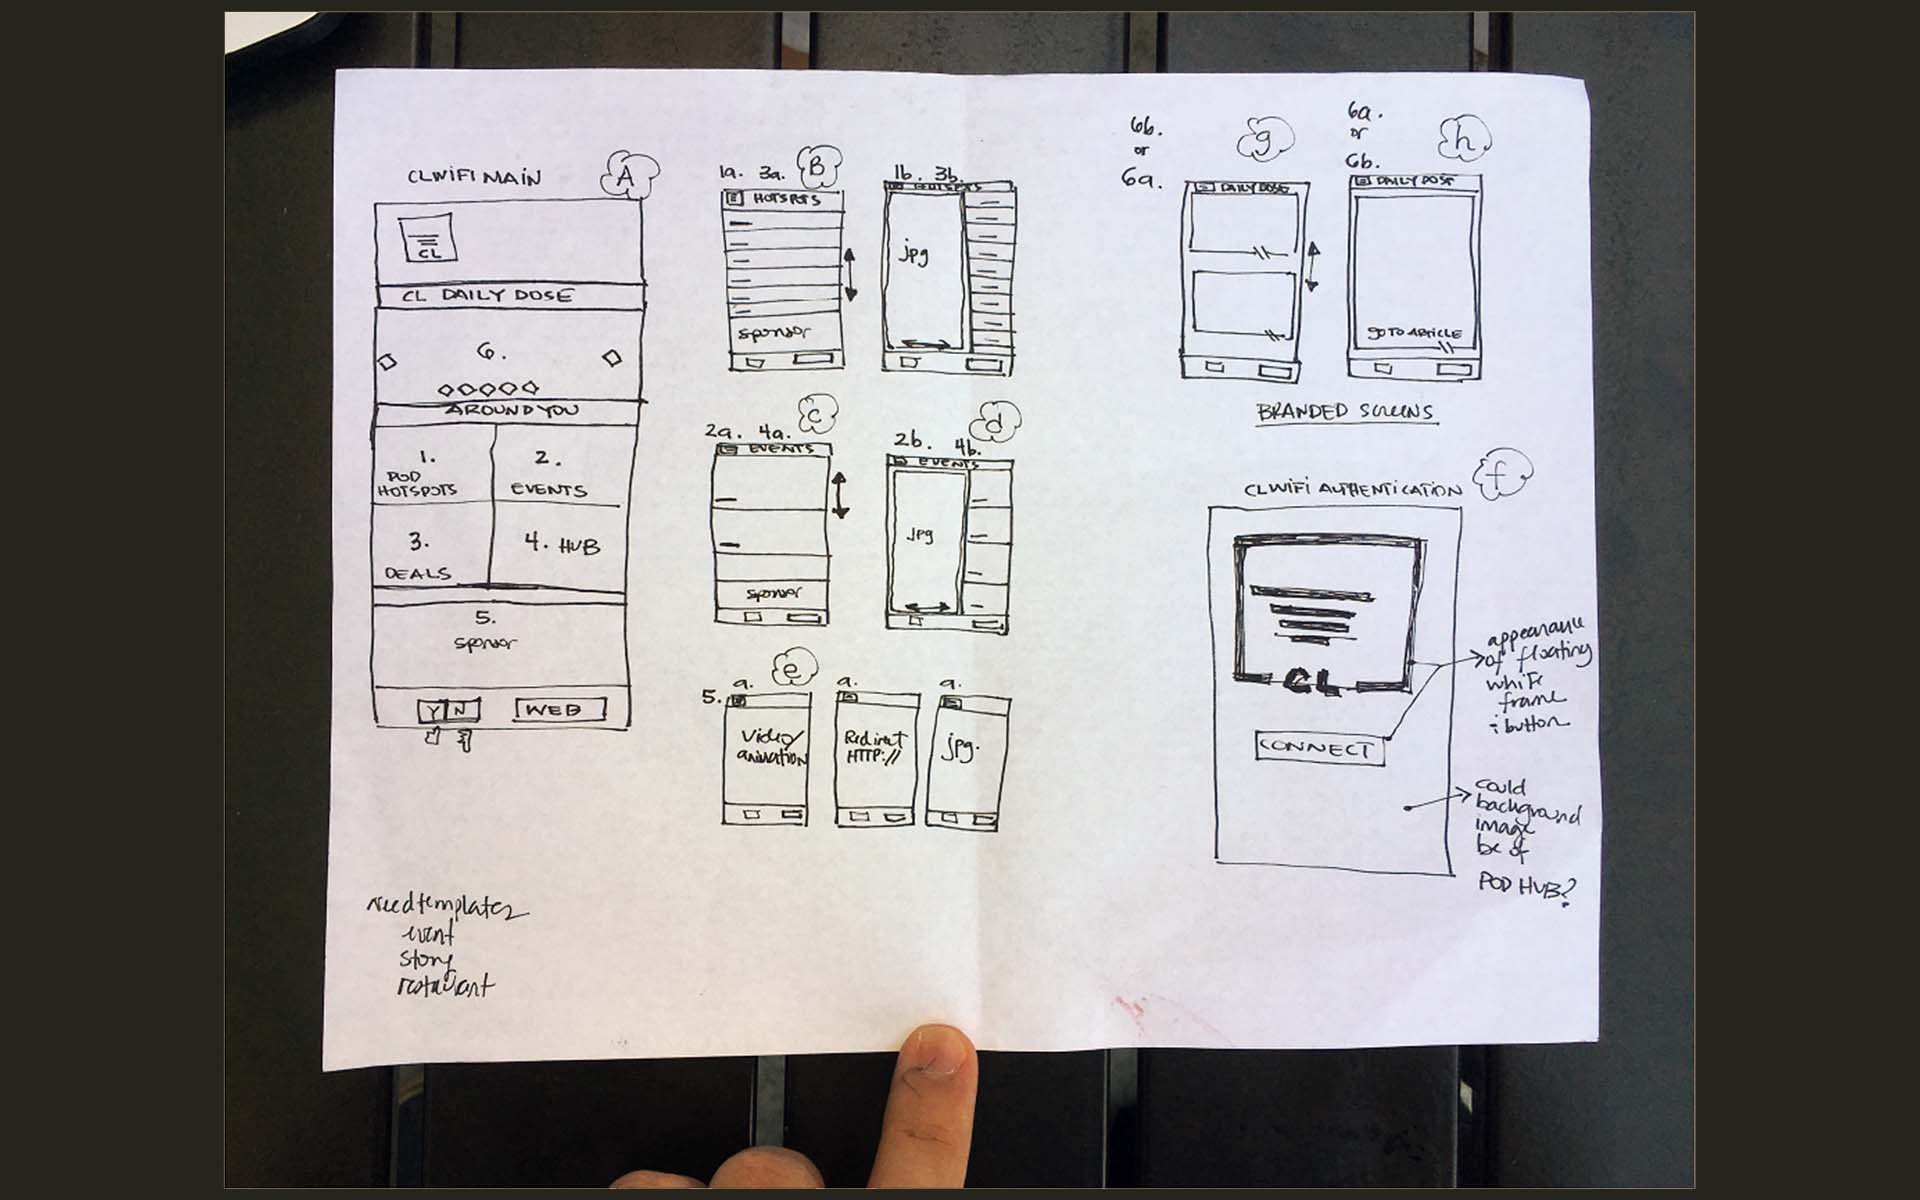 CLWIFI MAIN
A
CL
CL DAILY DOSE
6.
AROUND YOU
1.
POD
HOTSPOTS
2.
EVENTS
3.
DEALS
4. HUB
5.
sponsor
Y N
WEB
need templates
event
story
restaurant
1a. 3a.
B
HOTSPOTS
sponsor
1b. 3b.
HOTSPOTS
jpg
2a. 4a.
C
EVENTS
sponsor
2b. 4b.
d
EVENTS
jpg
e
5.
a.
Video/
animation
a.
Redirect
HTTP://
a.
jpg.
6b.
or
6a.
g
DAILY DOSE
6a.
or
6b.
h
DAILY DOSE
GO TO ARTICLE
BRANDED SCREENS
f
CLWIFI AUTHENTICATION
CL
CONNECT
appearance
of floating
white
frame
+ button
could
background
image
be of
POD HUB?